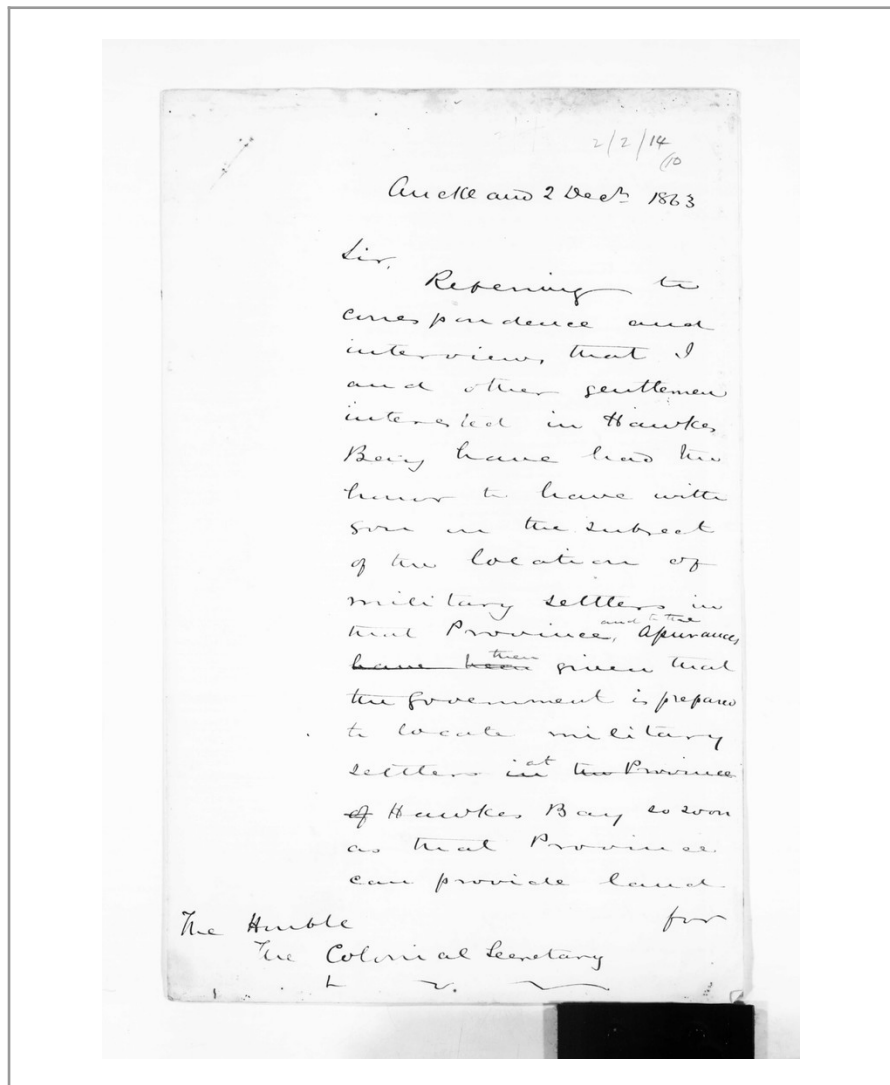 2/2/14
/10
Auckland 2 Decr 1863
Sir,
Referring to
correspondence and
interviews, that I
and other gentlemen
interested in Hawkes
Bay have had the
honor to have with
you on the subject
of the location of
military settlers in
that Province, and to the assurances
have been then given that
the Government is prepared
to locate military
settlers in at the Province
of Hawkes Bay so soon
as that Province
can provide land
for
The Honble
The Colonial Secretary